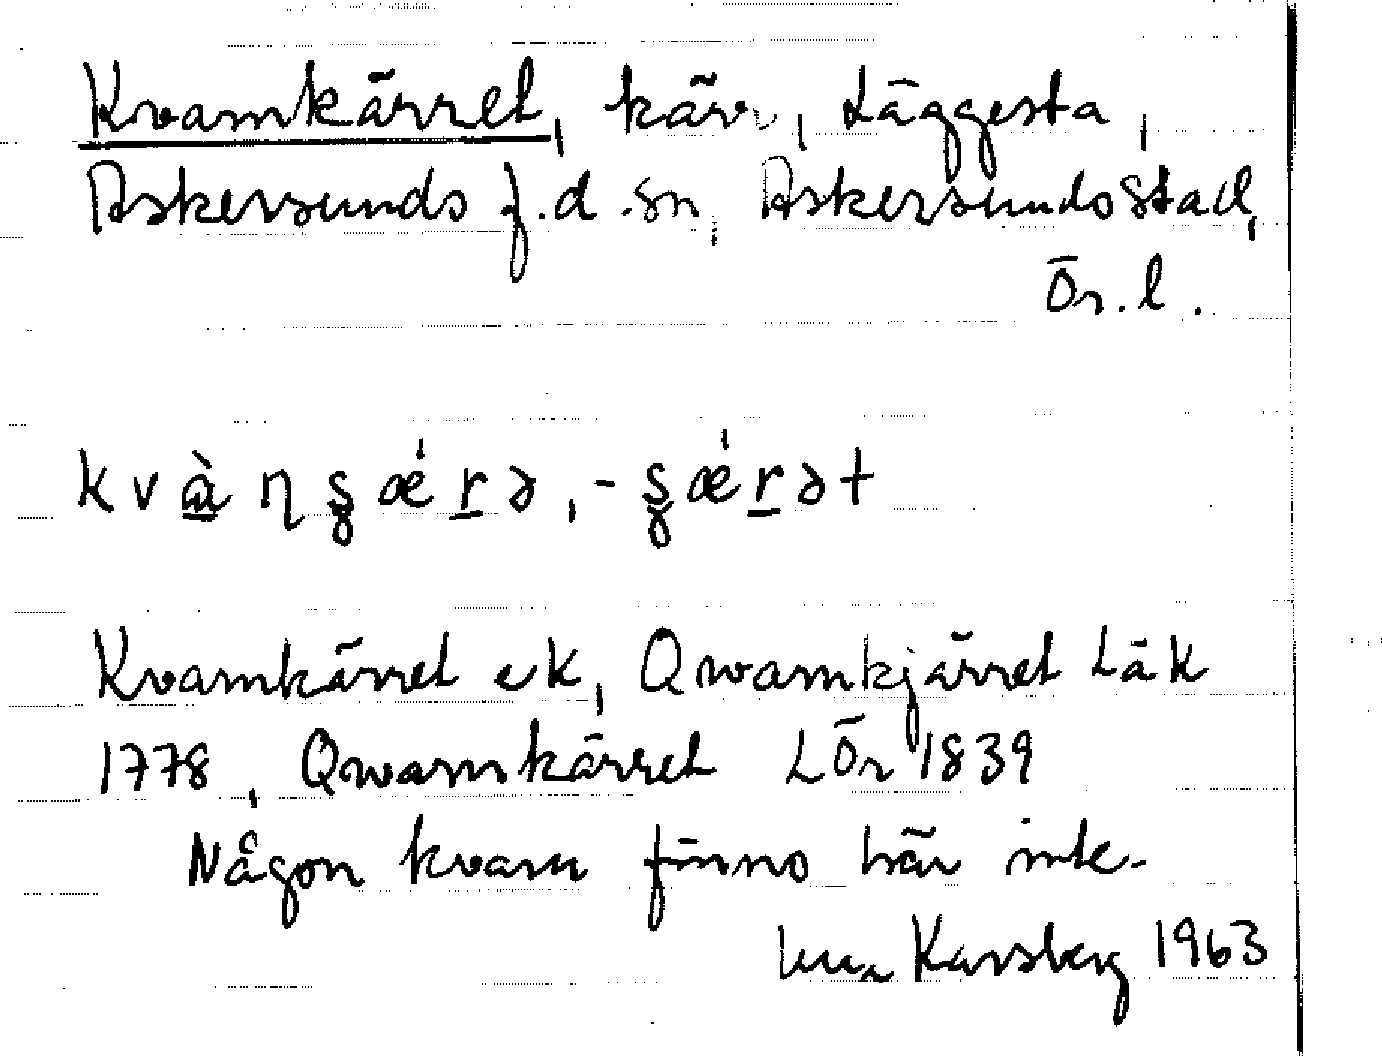 Kvarnkärret, kärr, Läggesta,
Askersunds f.d. sn, Askersunds stad,
Ör. l.
kvàɳʂǽrə, -ʂǽrət
Kvarnkärret ek, Qwarnkjärret LäK
1778, Qwarnkärret LÖr 1839
Någon kvarn finns här inte.
Karsberg 1963